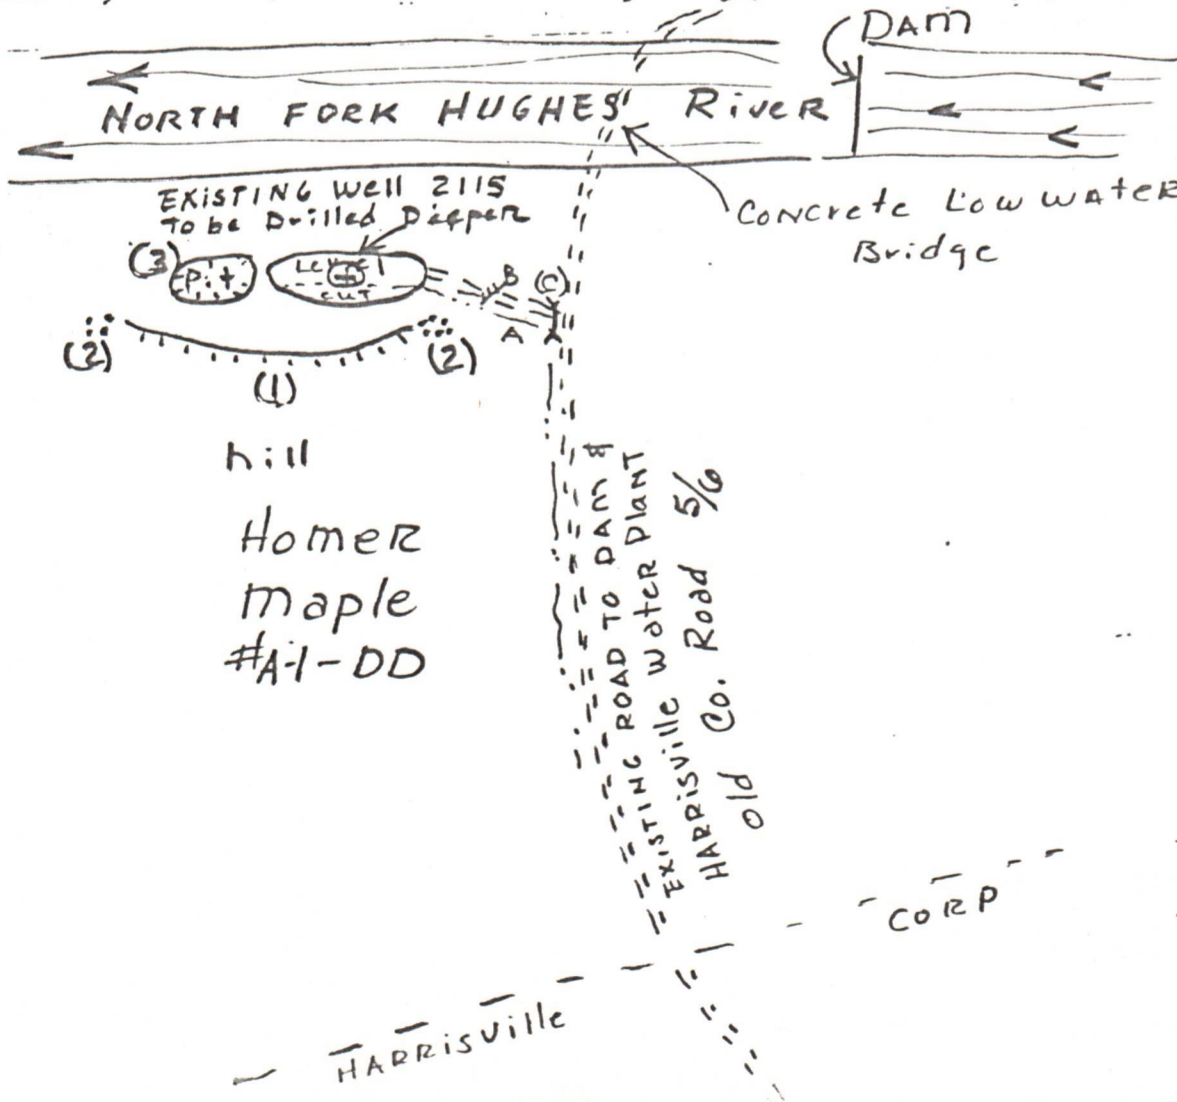 DAM
NORTH FORK HUGHES RIVER
EXISTING Well 2115
To be Drilled Deeper
CONCRETE LOW WATER
Bridge
(3)
Pit
LEVEL
CUT
B
(C)
A
(2)
(2)
(1)
hill
HomeR
maple
#A-1-DD
EXISTING ROAD TO DAM &
HARRISVILLE WATER PLANT
EXISTING
Old Co. Road 5/6
HARRISVille
CORP